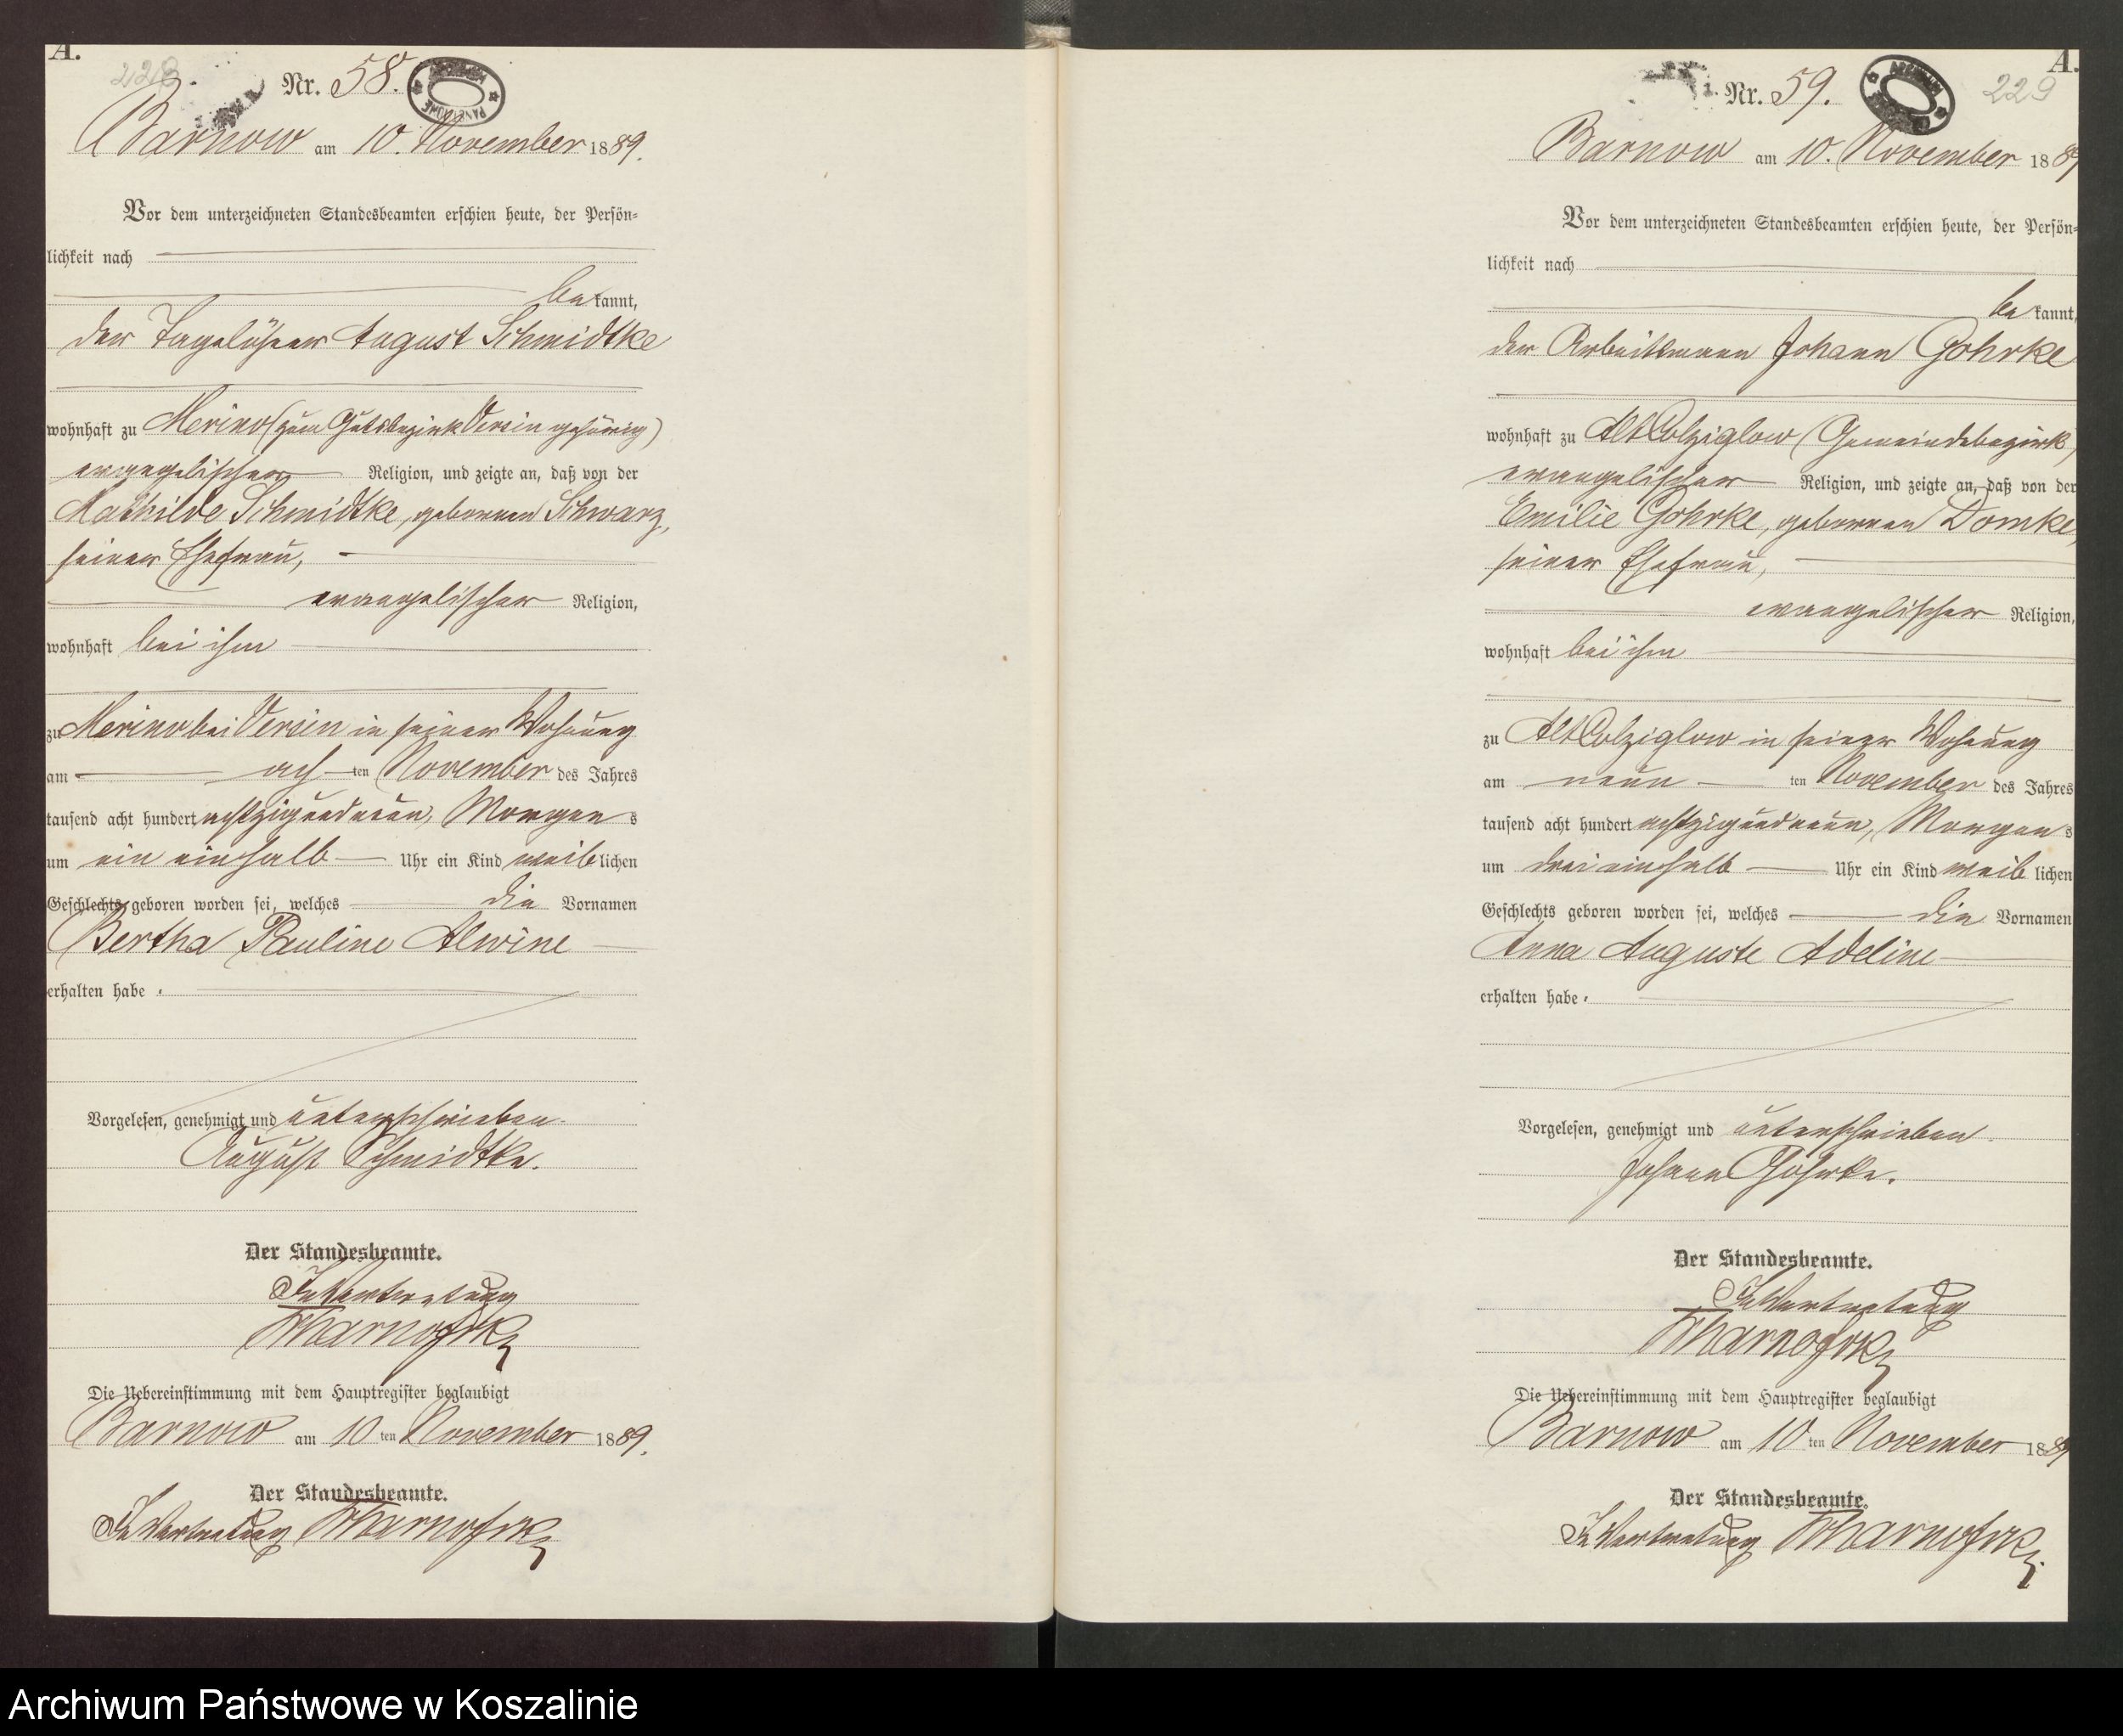 A.
228
Nr. 58.
Barnow am 10. November 1889.
Vor dem unterzeichneten Standesbeamten erschien heute, der Persön=
lichkeit nach
be kannt,
der Tagelöhner August Schmidtke
wohnhaft zu Merino (zum Gutsbezirk Versin gehörig)
evangelischer Religion, und zeigte an, daß von der
Mathilde Schmidtke, geborenen Schwarz,
seiner Ehefrau,
evangelischer Religion,
wohnhaft bei ihm
zu Merino bei Versin in seiner Wohnung
am ach ten November des Jahres
tausend acht hundert achtzigundneun, Morgen s
um ein einhalb Uhr ein Kind weib lichen
Geschlechts geboren worden sei, welches die Vornamen
Bertha Pauline Alwine
erhalten habe.
Vorgelesen, genehmigt und unterschrieben.
August Schmidtke.
Der Standesbeamte.
In Vertretung
Die Uebereinstimmung mit dem Hauptregister beglaubigt
Barnow am 10 ten November 1889.
Der Standesbeamte.
In Vertretung
A.
229
Nr. 59.
Barnow am 10. November 1889
Vor dem unterzeichneten Standesbeamten erschien heute, der Persön=
lichkeit nach
be kannt,
der Arbeitsmann Johann Gohrke
wohnhaft zu Alt Colziglow (Gemeindebezirk)
evangelischer Religion, und zeigte an, daß von der
Emilie Gohrke, geborenen Domke,
seiner Ehefrau,
evangelischer Religion,
wohnhaft bei ihm
zu Alt Colziglow in seiner Wohnung
am neun ten November des Jahres
tausend acht hundert achtzigundneun, Morgen s
um drei einhalb Uhr ein Kind weib lichen
Geschlechts geboren worden sei, welches die Vornamen
Anna Auguste Adeline
erhalten habe.
Vorgelesen, genehmigt und unterschrieben.
Johann Gohrke.
Der Standesbeamte.
In Vertretung
Die Uebereinstimmung mit dem Hauptregister beglaubigt
Barnow am 10 ten November 1889
Der Standesbeamte.
In Vertretung
Archiwum Państwowe w Koszalinie